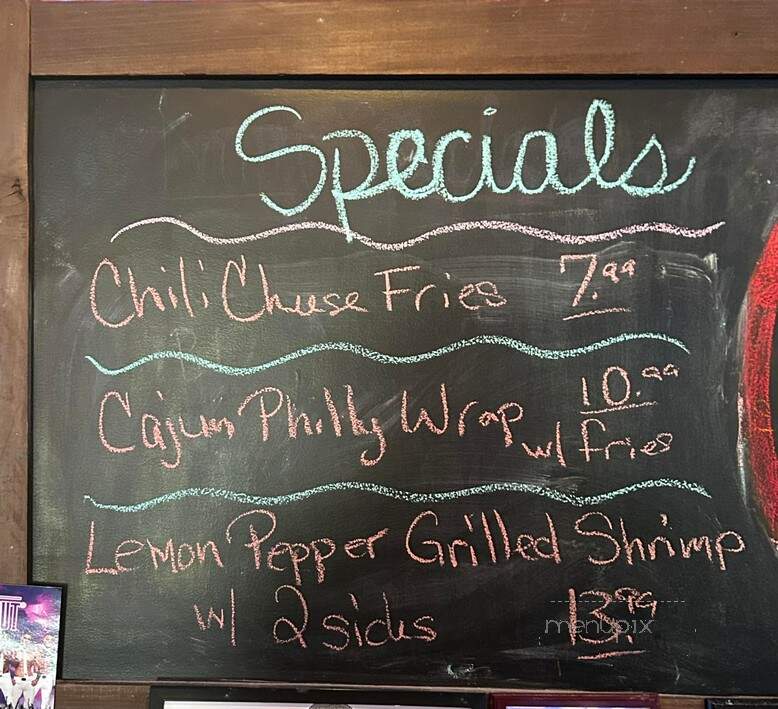 Specials
Chili Cheese Fries 7.99
Cajun Philly Wrap 10.99
w/ fries
Lemon Pepper Grilled Shrimp
w/ 2 sides 13.99
menupix